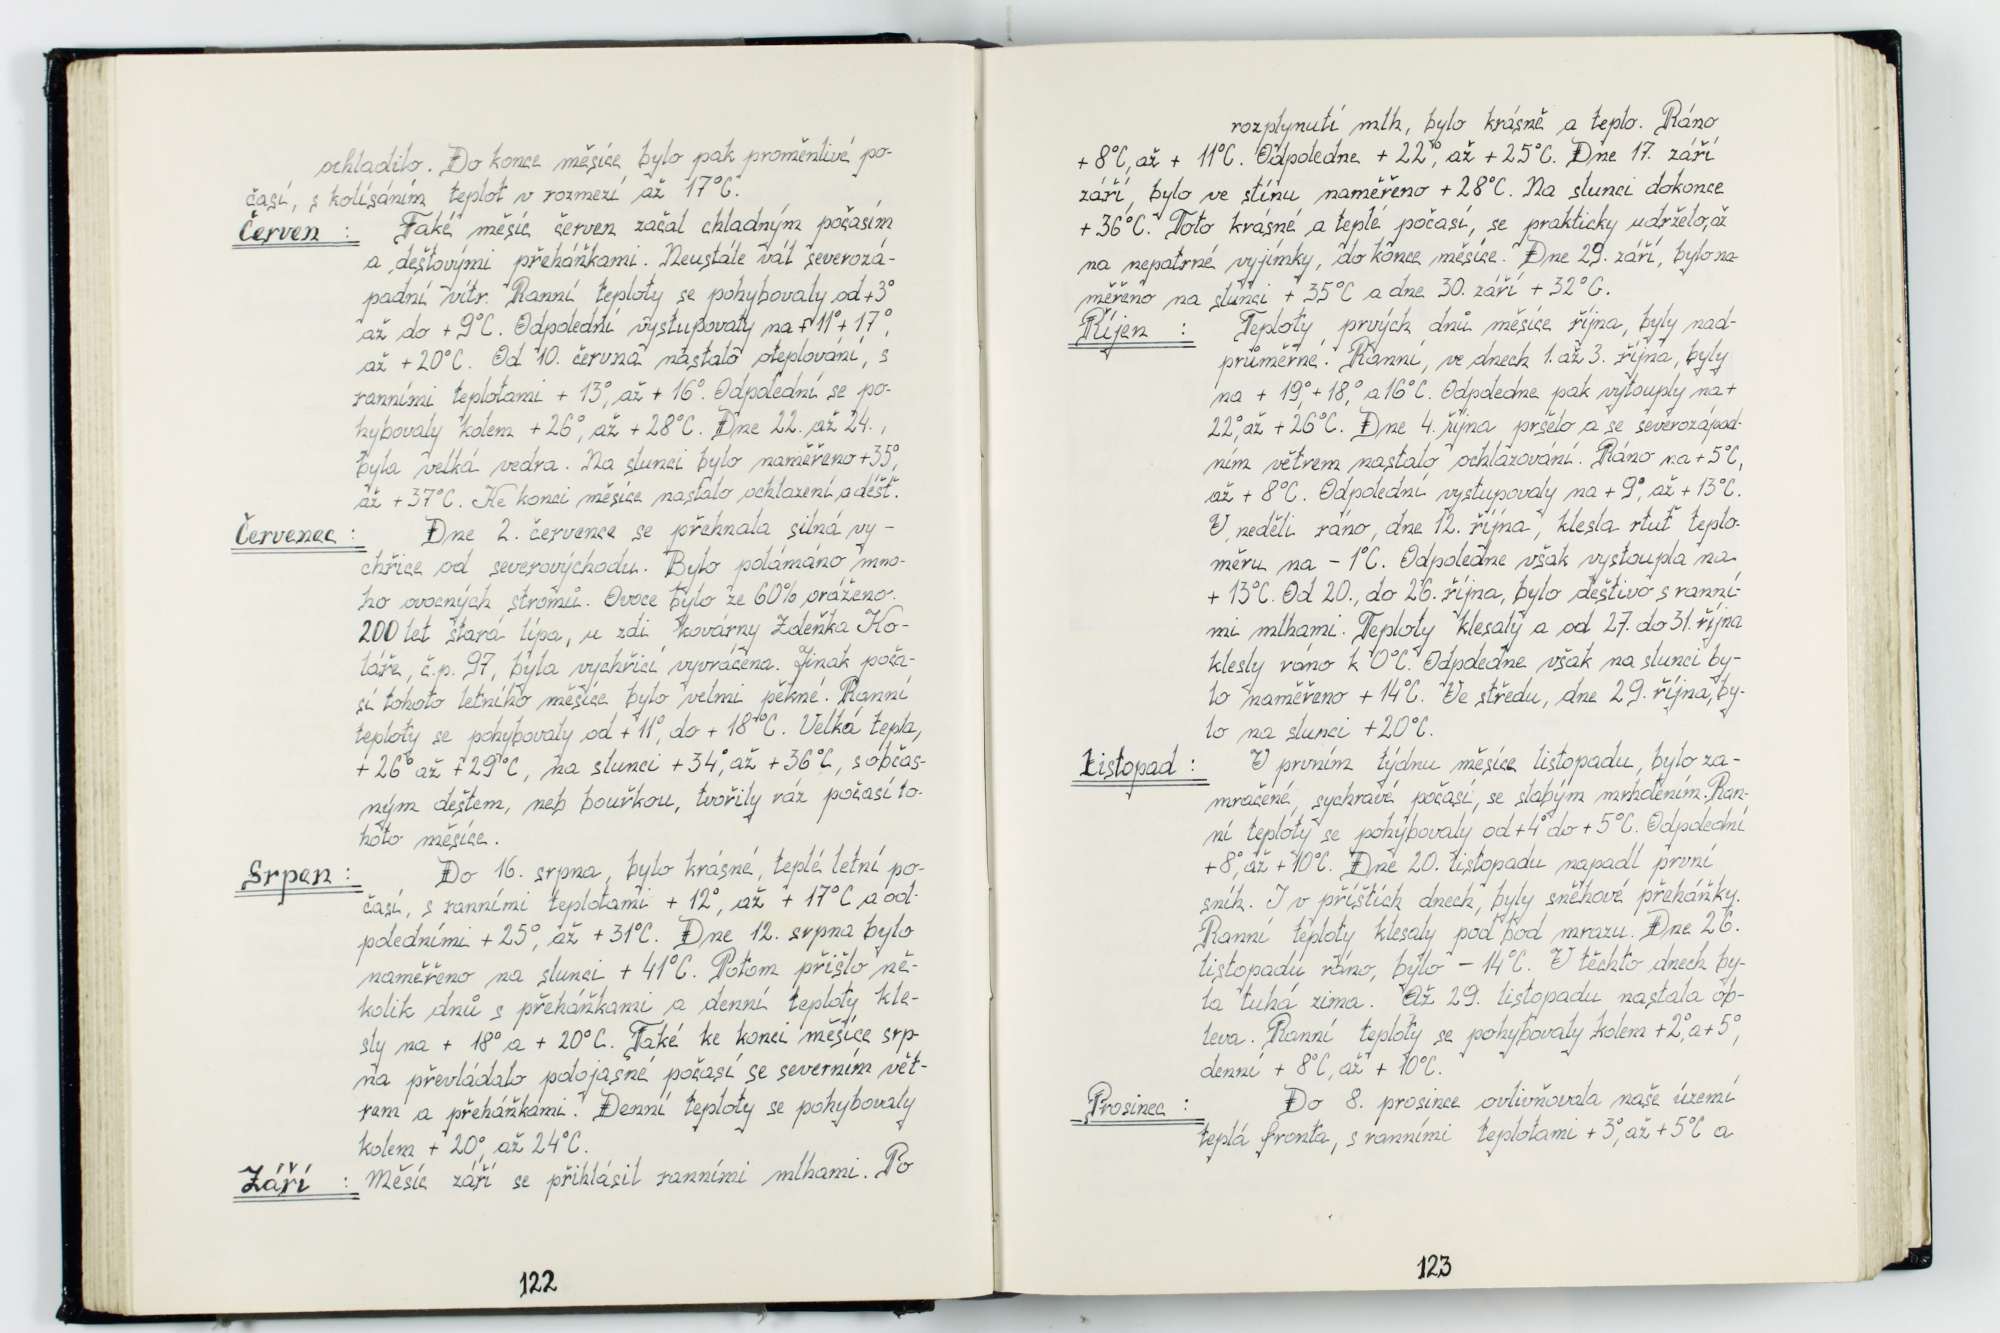 ochladilo. Do konce měsíce bylo pak proměnlivé po-
časí, s kolísáním teplot v rozmezí až 17°C.
Červen : Také měsíc červen začal chladným počasím
a dešťovými přeháňkami. Neustále vál severozá-
padní vítr. Ranní teploty se pohybovaly od +3°
až do + 9°C. Odpolední vystupovaly na + 11° + 17°,
až + 20°C. Od 10. června nastalo oteplování, s
ranními teplotami + 13°, až + 16°. Odpolední se po-
hybovaly kolem + 26°, až + 28°C. Dne 22. až 24.,
byla velká vedra. Na slunci bylo naměřeno +35°,
až + 37°C. Ke konci měsíce nastalo ochlazení a déšť.
Červenec : Dne 2. července se přehnala silná vy-
chřice od severovýchodu. Bylo polámáno mno-
ho ovocných stromů. Ovoce bylo ze 60% oráženo.
200 let stará lípa, u zdi kovárny Zdeňka Ko-
láře, č.p. 97, byla vychřicí vyvrácena. Jinak poča-
sí tohoto letního měsíce bylo velmi pěkné. Ranní
teploty se pohybovaly od + 11°, do + 18°C. Velká tepla,
+ 26° až + 29°C, na slunci + 34°, až + 36°C, s občas-
ným deštem, neb bouřkou, tvořily ráz počasí to-
hoto měsíce.
Srpen : Do 16. srpna, bylo krásné, teplé letní po-
časí, s ranními teplotami + 12°, až + 17°C a od-
poledními + 25°, až + 31°C. Dne 12. srpna bylo
naměřeno na slunci + 41°C. Potom přišlo ně-
kolik dnů s přeháňkami a denní teploty kle-
sly na + 18° a + 20°C. Také ke konci měsíce srp-
na převládalo polojasné počasí se severním vět-
rem a přeháňkami. Denní teploty se pohybovaly
kolem + 20°, až 24°C.
Září : Měsíc září se přihlásil ranními mlhami. Po
122
rozplynutí mlh, bylo krásně a teplo. Ráno
+ 8°C, až + 11°C. Odpoledne + 22°, až + 25°C. Dne 17. září
září, bylo ve stínu naměřeno + 28°C. Na slunci dokonce
+ 36°C. Toto krásné a teplé počasí, se prakticky udrželo, až
na nepatrné vyjímky, do konce měsíce. Dne 29. září, bylo na-
měřeno na slunci + 35°C a dne 30. září + 32°C.
Říjen : Teploty prvých dnů měsíce října, byly nad-
průměrné. Ranní, ve dnech 1. až 3. října, byly
na + 19°, + 18,° a 16°C. Odpoledne pak vytouply na +
22°, až + 26°C. Dne 4. října pršelo a se severozápad-
ním větrem nastalo ochlazování. Ráno na + 5°C,
až + 8°C. Odpolední vystupovaly na + 9°, až + 13°C.
V neděli ráno, dne 12. října, klesla rtuť teplo-
měru na - 1°C. Odpoledne však vystoupla na
+ 13°C. Od 20., do 26. října, bylo deštivo s ranní-
mi mlhami. Teploty klesaly a od 27. do 31. října
klesly ráno k 0°C. Odpoledne však na slunci by-
lo naměřeno + 14°C. Ve středu, dne 29. října, by-
lo na slunci +20°C.
Listopad : V prvním týdnu měsíce listopadu, bylo za-
mračené, sychravé počasí, se slabým mrholením. Ran-
ní teploty se pohybovaly od +4° do + 5°C. Odpolední
+ 8°, až + 10°C. Dne 20. listopadu napadl první
sníh. I v příštích dnech, byly sněhové přeháňky.
Ranní teploty klesaly pod bod mrazu. Dne 26.
listopadu ráno, bylo - 14°C. V těchto dnech by-
la tuhá zima. Až 29. listopadu nastala ob-
leva. Ranní teploty se pohybovaly kolem + 2°, a + 5°,
denní + 8°C, až + 10°C.
Prosinec : Do 8. prosince ovlivňovala naše území
teplá fronta, s ranními teplotami + 3°, až + 5°C a
123